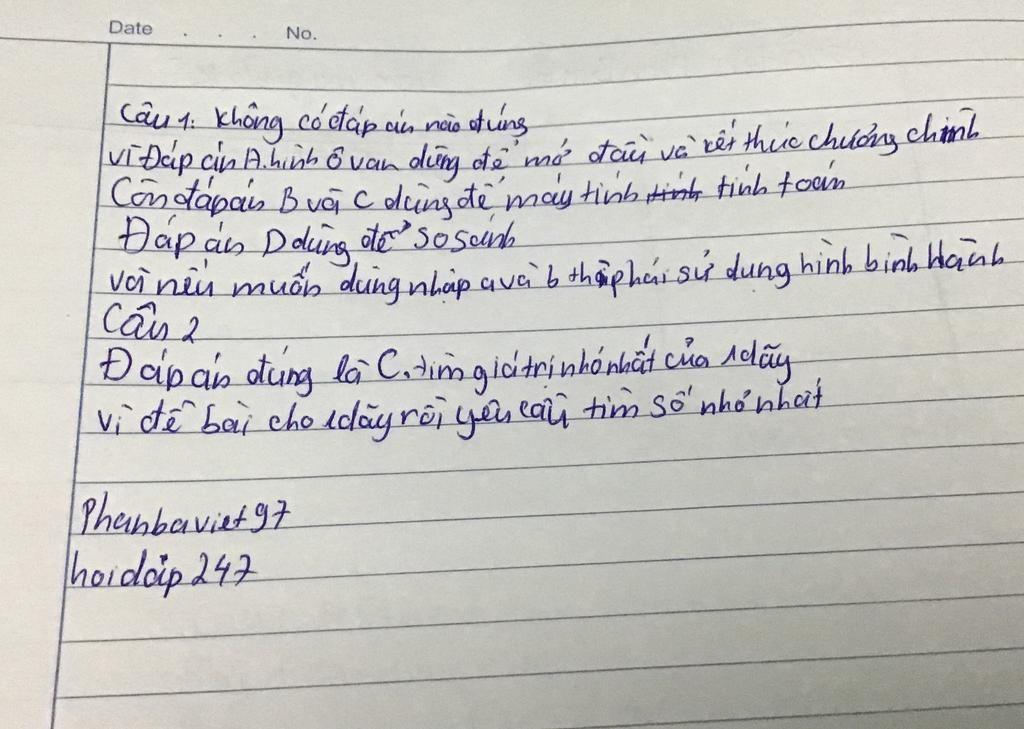 Date . . . No.
Câu 1: không có đáp án nào đúng
vì Đáp án A. hình ô van dùng để mở đầu và kết thúc chương chình
Còn đáp án B và C dùng để máy tính tính tính toán
Đáp án D dùng để so sánh
và nếu muốn dùng nhập a và b thì phải sử dụng hình bình Hành
Câu 2
Đáp án đúng là C. tìm giá trị nhỏ nhất của 1 dãy
vì đề bài cho 1 dãy rồi yêu cầu tìm số nhỏ nhất
Phanbaviet97
hoidap247